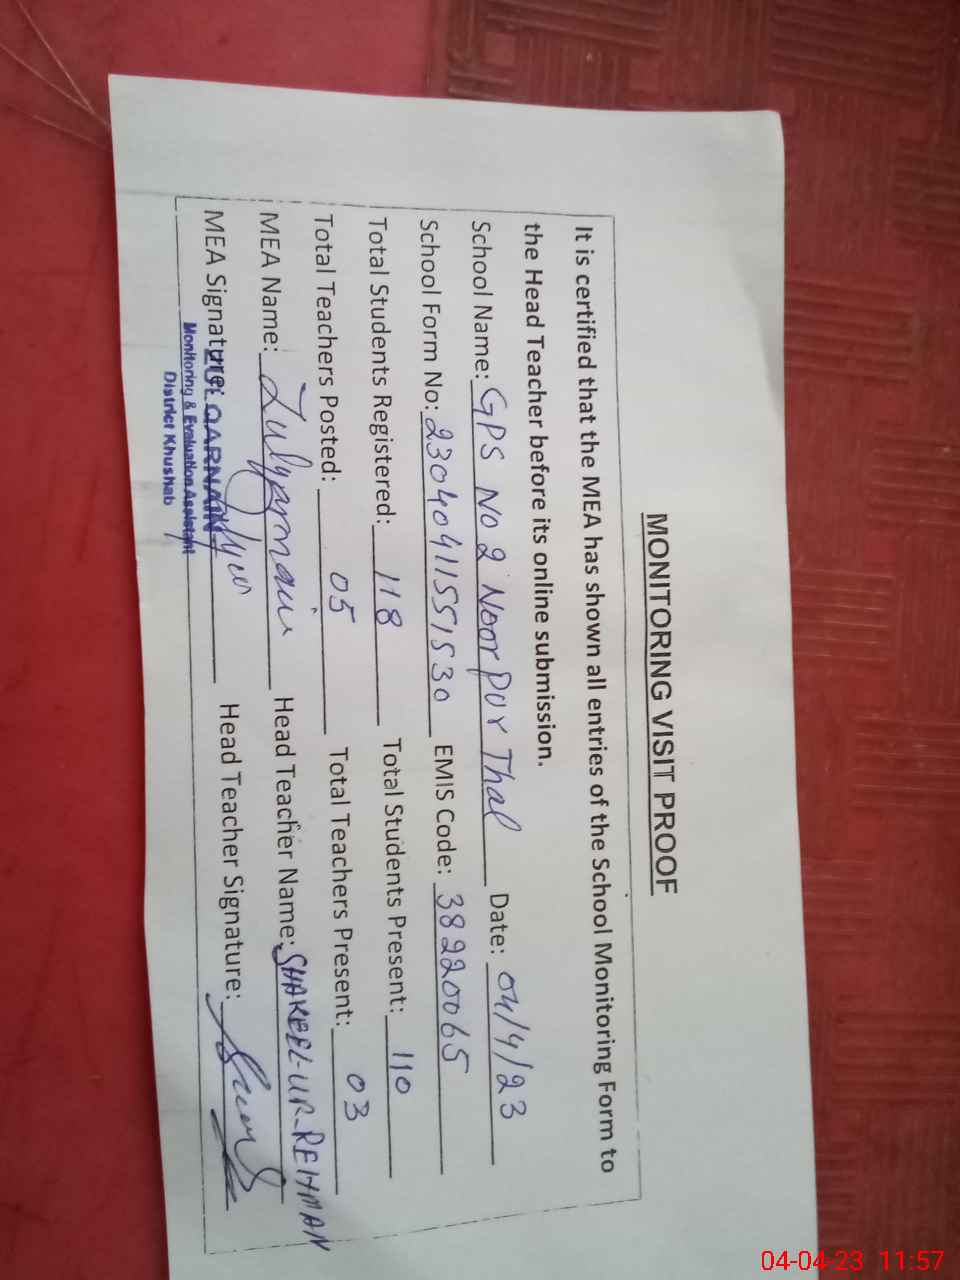 MONITORING VISIT PROOF
It is certified that the MEA has shown all entries of the School Monitoring Form to
the Head Teacher before its online submission.
School Name: GPS No 2 Noor pur Thal Date: 04/4/23
School Form No: 230404115515 30 EMIS Code: 38220065
Total Students Registered: 118 Total Students Present: 110
Total Teachers Posted: 05 Total Teachers Present: 03
MEA Name: Head Teacher Name: SHAKEEL-UR-REHMAN
MEA Signature: Head Teacher Signature:
ZULQARNAIN
Monitoring & Evaluation Assistant
District Khushab
04-04-23 11:57